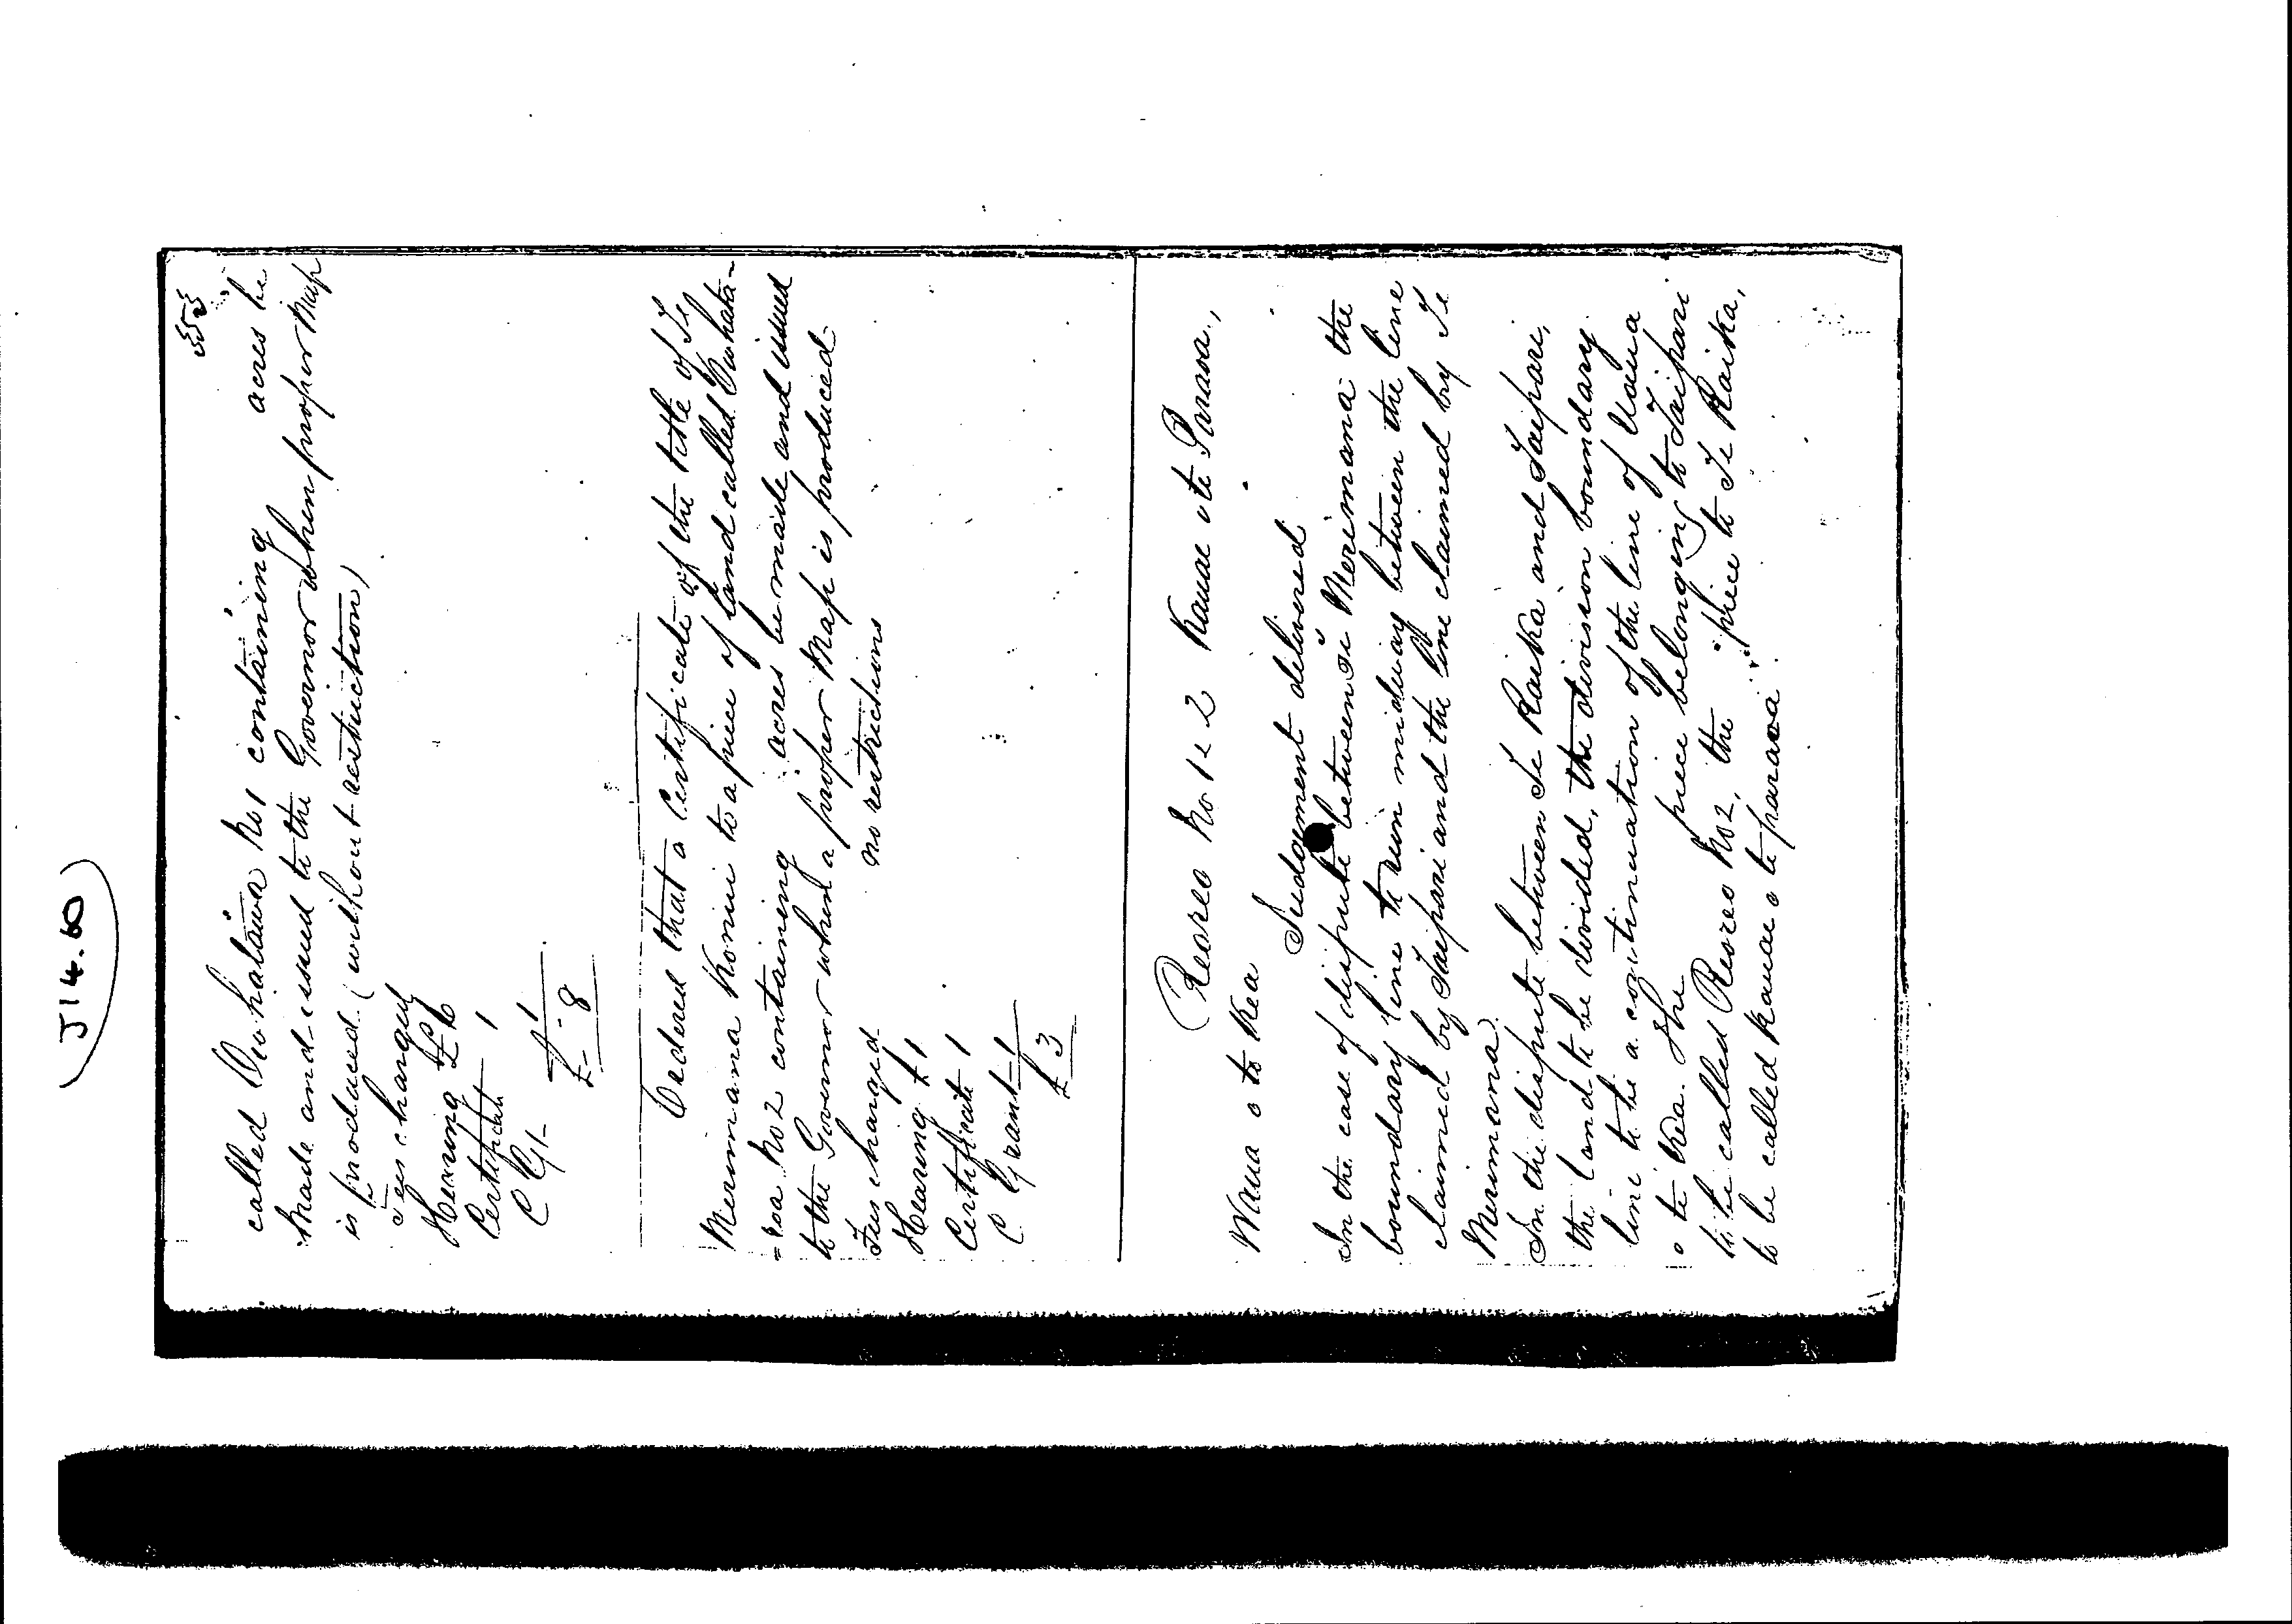 J14.60
353
called Owhatawa No 1 containing acres be
made and issued to the Governor when proper Map
is produced (without restriction)
Fees charged
Hearing £6
Certificate 1
C G 1
£ 8
Ordered that a Certificate of the title of Te
Merimana Konui to a piece of land called Owhata-
=roa No 2 containing acres be made and issued
to the Governor when a proper Map is produced
Fees charged no restrictions
Hearing £1
Certificate 1
C Grant 1
£ 3
Reoreo No 1 & 2 Kauae o te Paraoa,
Waua o te Kea
Judgement delivered
In the case of dispute between Te Merimana the
boundary line to run midway between the line
claimed by Taipari and the line claimed by Te
Merimana.
In the dispute between Te Raika and Taipari,
the land to be divided, the division boundary
line to be a continuation of the line of Uaua
o te Kea. The piece belonging to Taipari
to be called Reoreo No 2, the " piece to Te Raika,
to be called Kauae o te paraoa.